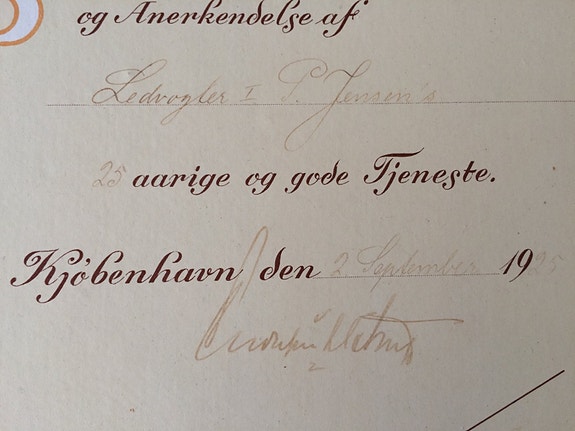 og Anerkendelse af
Ledvogter I P. Jensen's
25 aarige og gode Tjeneste.
Kjöbenhavn den 2 September 1925